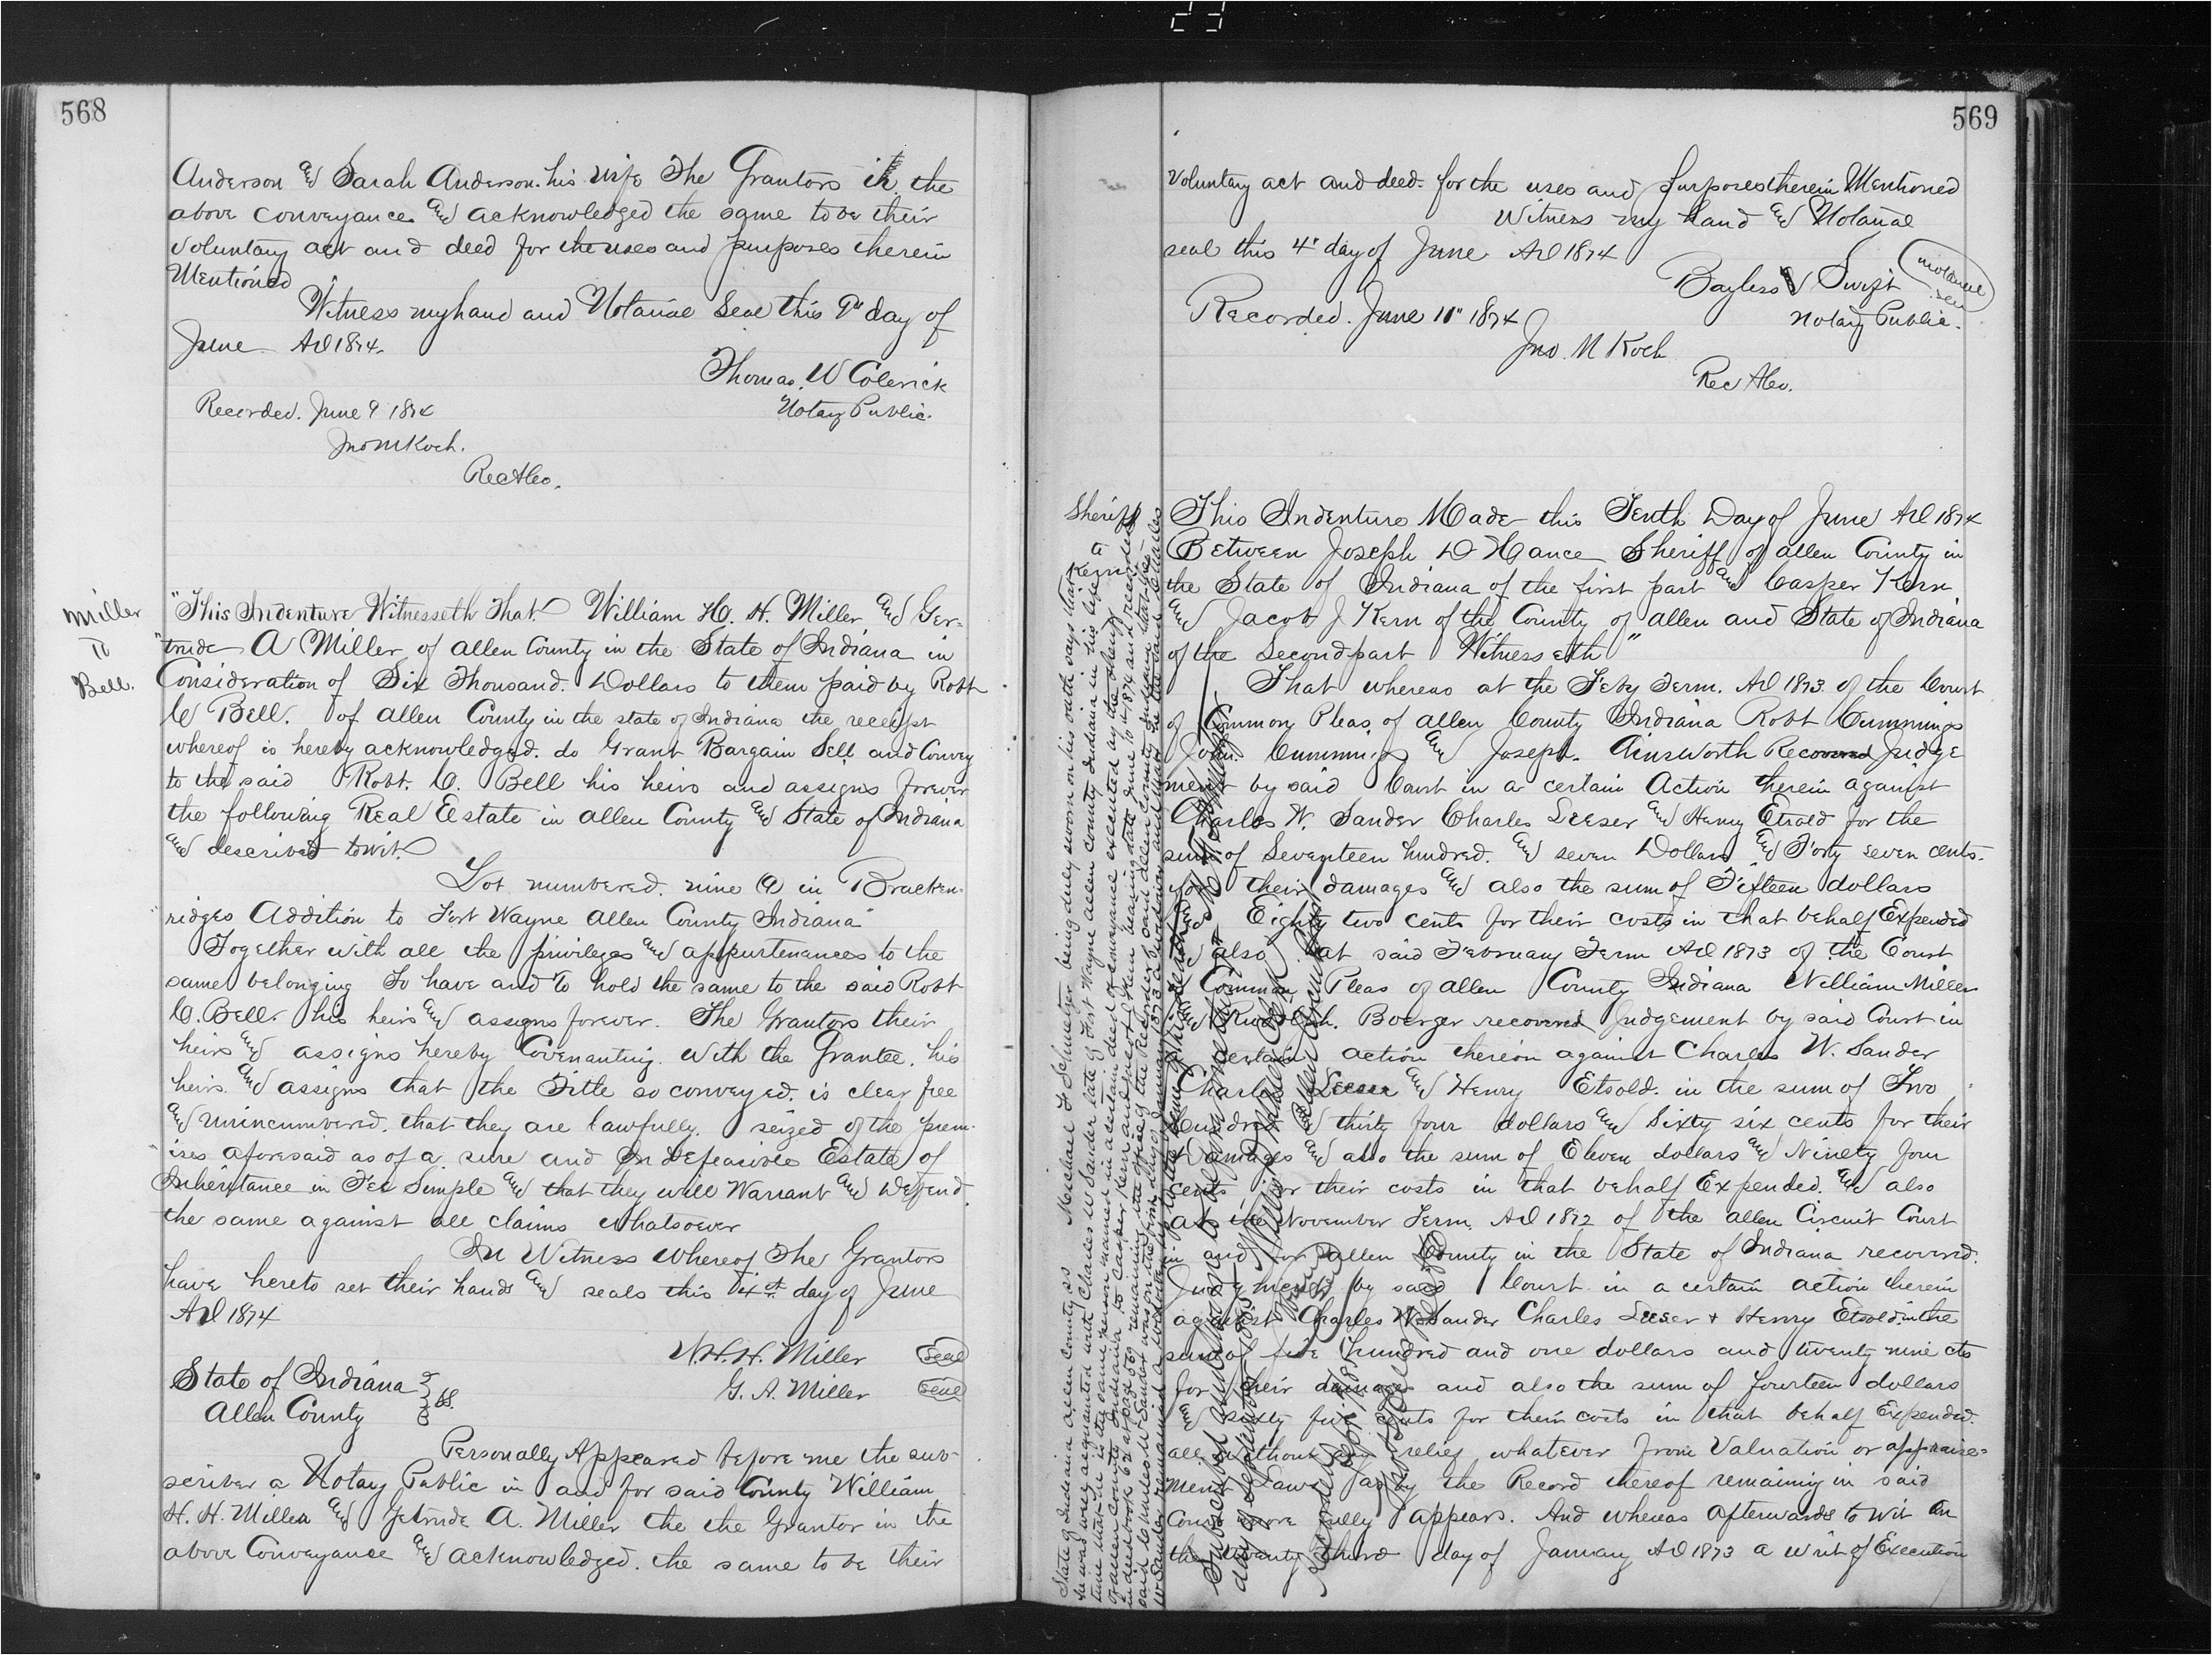 568
Anderson and Sarah Anderson. his wife The Grantors in the
above conveyance and acknowledged the same to be their
voluntary act and deed for the uses and purposes therein
Mentioned
Witness my hand and Notarial Seal this 9" day of
June AD 1874.
Thomas. W Colerick
Notary Public.
Recorded. June 9 1874
Jno M Koch.
Rec Aleo.
Miller
To
Bell.
"This Indenture Witnesseth That. William H. H. Miller and Ger=
"trude A Miller of Allen County in the State of Indiana in
Consideration of Six Thousand. Dollars to them paid by Robt
C Bell. of Allen County in the state of Indiana the receipt
whereof is hereby acknowledged. do Grant Bargain Sell and Convey
to the said Robt. C. Bell his heirs and assigns forever
the following Real Estate in Allen County and State of Indiana
and described towit.
Lot numbered. nine (9) in Bracken-
ridges Addition to Fort Wayne Allen County Indiana
Together with all the privileges and appurtenances to the
same belonging To have and To hold the same to the said Robt
C. Bell. his heirs and assigns forever. The Grantors their
heirs and assigns hereby Covenanting. With the Grantee. his
heirs. and assigns that the Title so conveyed. is clear free
and unincumbered. that they are lawfully. seized of the prem-
"ises aforesaid as of a sure and Indefeasible Estate of
Inheritance in Fee Simple and that they will Warrant and Defend.
the same against all claims whatsoever
In Witness Whereof The Grantors
have hereto set their hands and seals this 4st day of June
AD 1874
W. H. H. Miller Seal
G. A. Miller Seal
State of Indiana
Allen County ss.
Personally Appeared before me the sub-
scriber a Notay Public in and for said County William
H. H. Miller and Getrude A. Miller the the Grantor in the
above Conveyance and acknowledged. the same to be their
569
voluntary act and deed. for the uses and purposes therein Mentioned
Witness my hand and Notarial
seal this 4" day of June AD 1874
Bayless Swift
Notarial
seal
Notary Public.
Recorded. June 11" 1874
Jno. M Koch
Rec Aleo.
Sheriff
to
Kern
This Indenture Made this Tenth Day of June AD 1874
Between Joseph D Hance Sheriff of Allen County in
the State of Indiana of the first part and Casper Kern
and Jacob J Kern of the County of Allen and State of Indiana
of the Second part Witnesseth"
That whereas at the Feby Term. AD 1873 of the Court
of Common Pleas of Allen County Indiana Robt Cummings
John. Cummings and Joseph. Ainsworth Recovered Judge
ment by said Court in a certain Action therein against
Charles W. Sander Charles Leeser and Henry Etsold for the
sum of Seventeen hundred. and seven Dollars and Forty seven cents.
for their damages and also the sum of Fifteen dollars
and Eighty two cents for their costs in that behalf Expended
and also at said February Term AD 1873 of the Court
of Common Pleas of Allen County Indiana William Miller
and Rudolph. Boerger recovered Judgement by said Court in
a certain action therein against Charles W. Sander
Charles Leeser and Henry Etsold. in the sum of Two
hundred and thirty four dollars and Sixty six cents for their
damages and also the sum of Eleven dollars and Ninety four
cents for their costs in that behalf Expended. and also
at the November Term AD 1872 of the Allen Circuit Court
in and for Allen County in the State of Indiana recovered.
Judgment by said Court in a certain action therein
against Charles W. Sander Charles Leeser + Henry Etsold in the
sum of five hundred and one dollars and twenty nine cts
for their damages and also the sum of fourteen dollars
and sixty five cents for their costs in that behalf Expended.
all without any relief whatever from Valuation or appraise=
ment Laws as by the Record thereof remaining in said
Court more fully appears. And whereas afterwards to wit on
the twenty third day of January AD 1873 a writ of Execution
State of Indiana Allen County ss Michael F Schmetzer being duly sworn on his oath says that
he was well acquainted with Charles W Sander late of Fort Wayne Allen County Indiana in his life
time that he is the same person named in a certain deed of conveyance executed by the sheriff
of Allen County Indiana to Casper Kern and Jacob J Kern bearing date June 10 1874 and recorded
in deed book 62 at page 569 remaining in the office of the Recorder of said Allen County